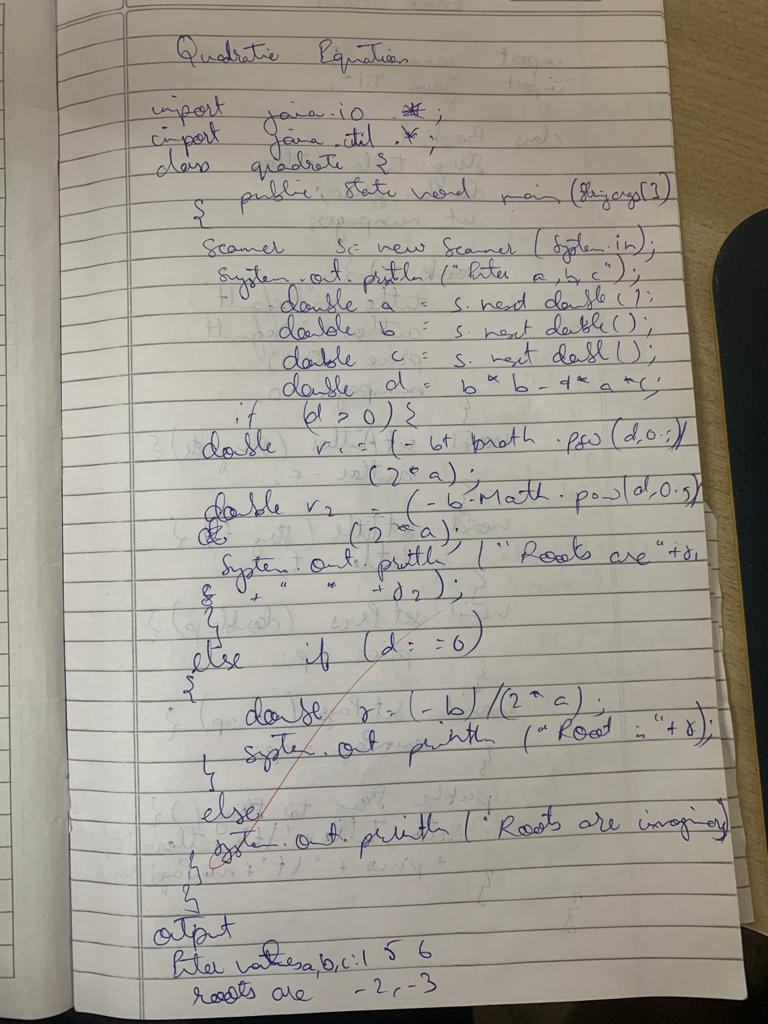 Quadratic Equation
import java.io.*;
import java.util.*;
class quadrate {
public static void main (String args[])
{
Scanner s= new Scanner (System.in);
System.out.println ("Enter a,b,c");
double a = s.next double ();
double b = s.next double();
double c = s.next doubl ();
double d = b*b-4*a*c;
if (d > 0) {
double r1 = (-b+ math.pow (d,0.5)/
(2*a);
double r2 = (-b-Math.pow(d,0.5)/
(2*a);
System.out.println ("Roots are"+r1
+ " " +r2);
}
else if (d==0)
{
double r=(-b)/(2*a);
System.out println ("Root is"+r);
}
else
System.out.println ("Roots are imaginery)
}
}
output
Enter values a,b,c:1 5 6
roots are -2,-3